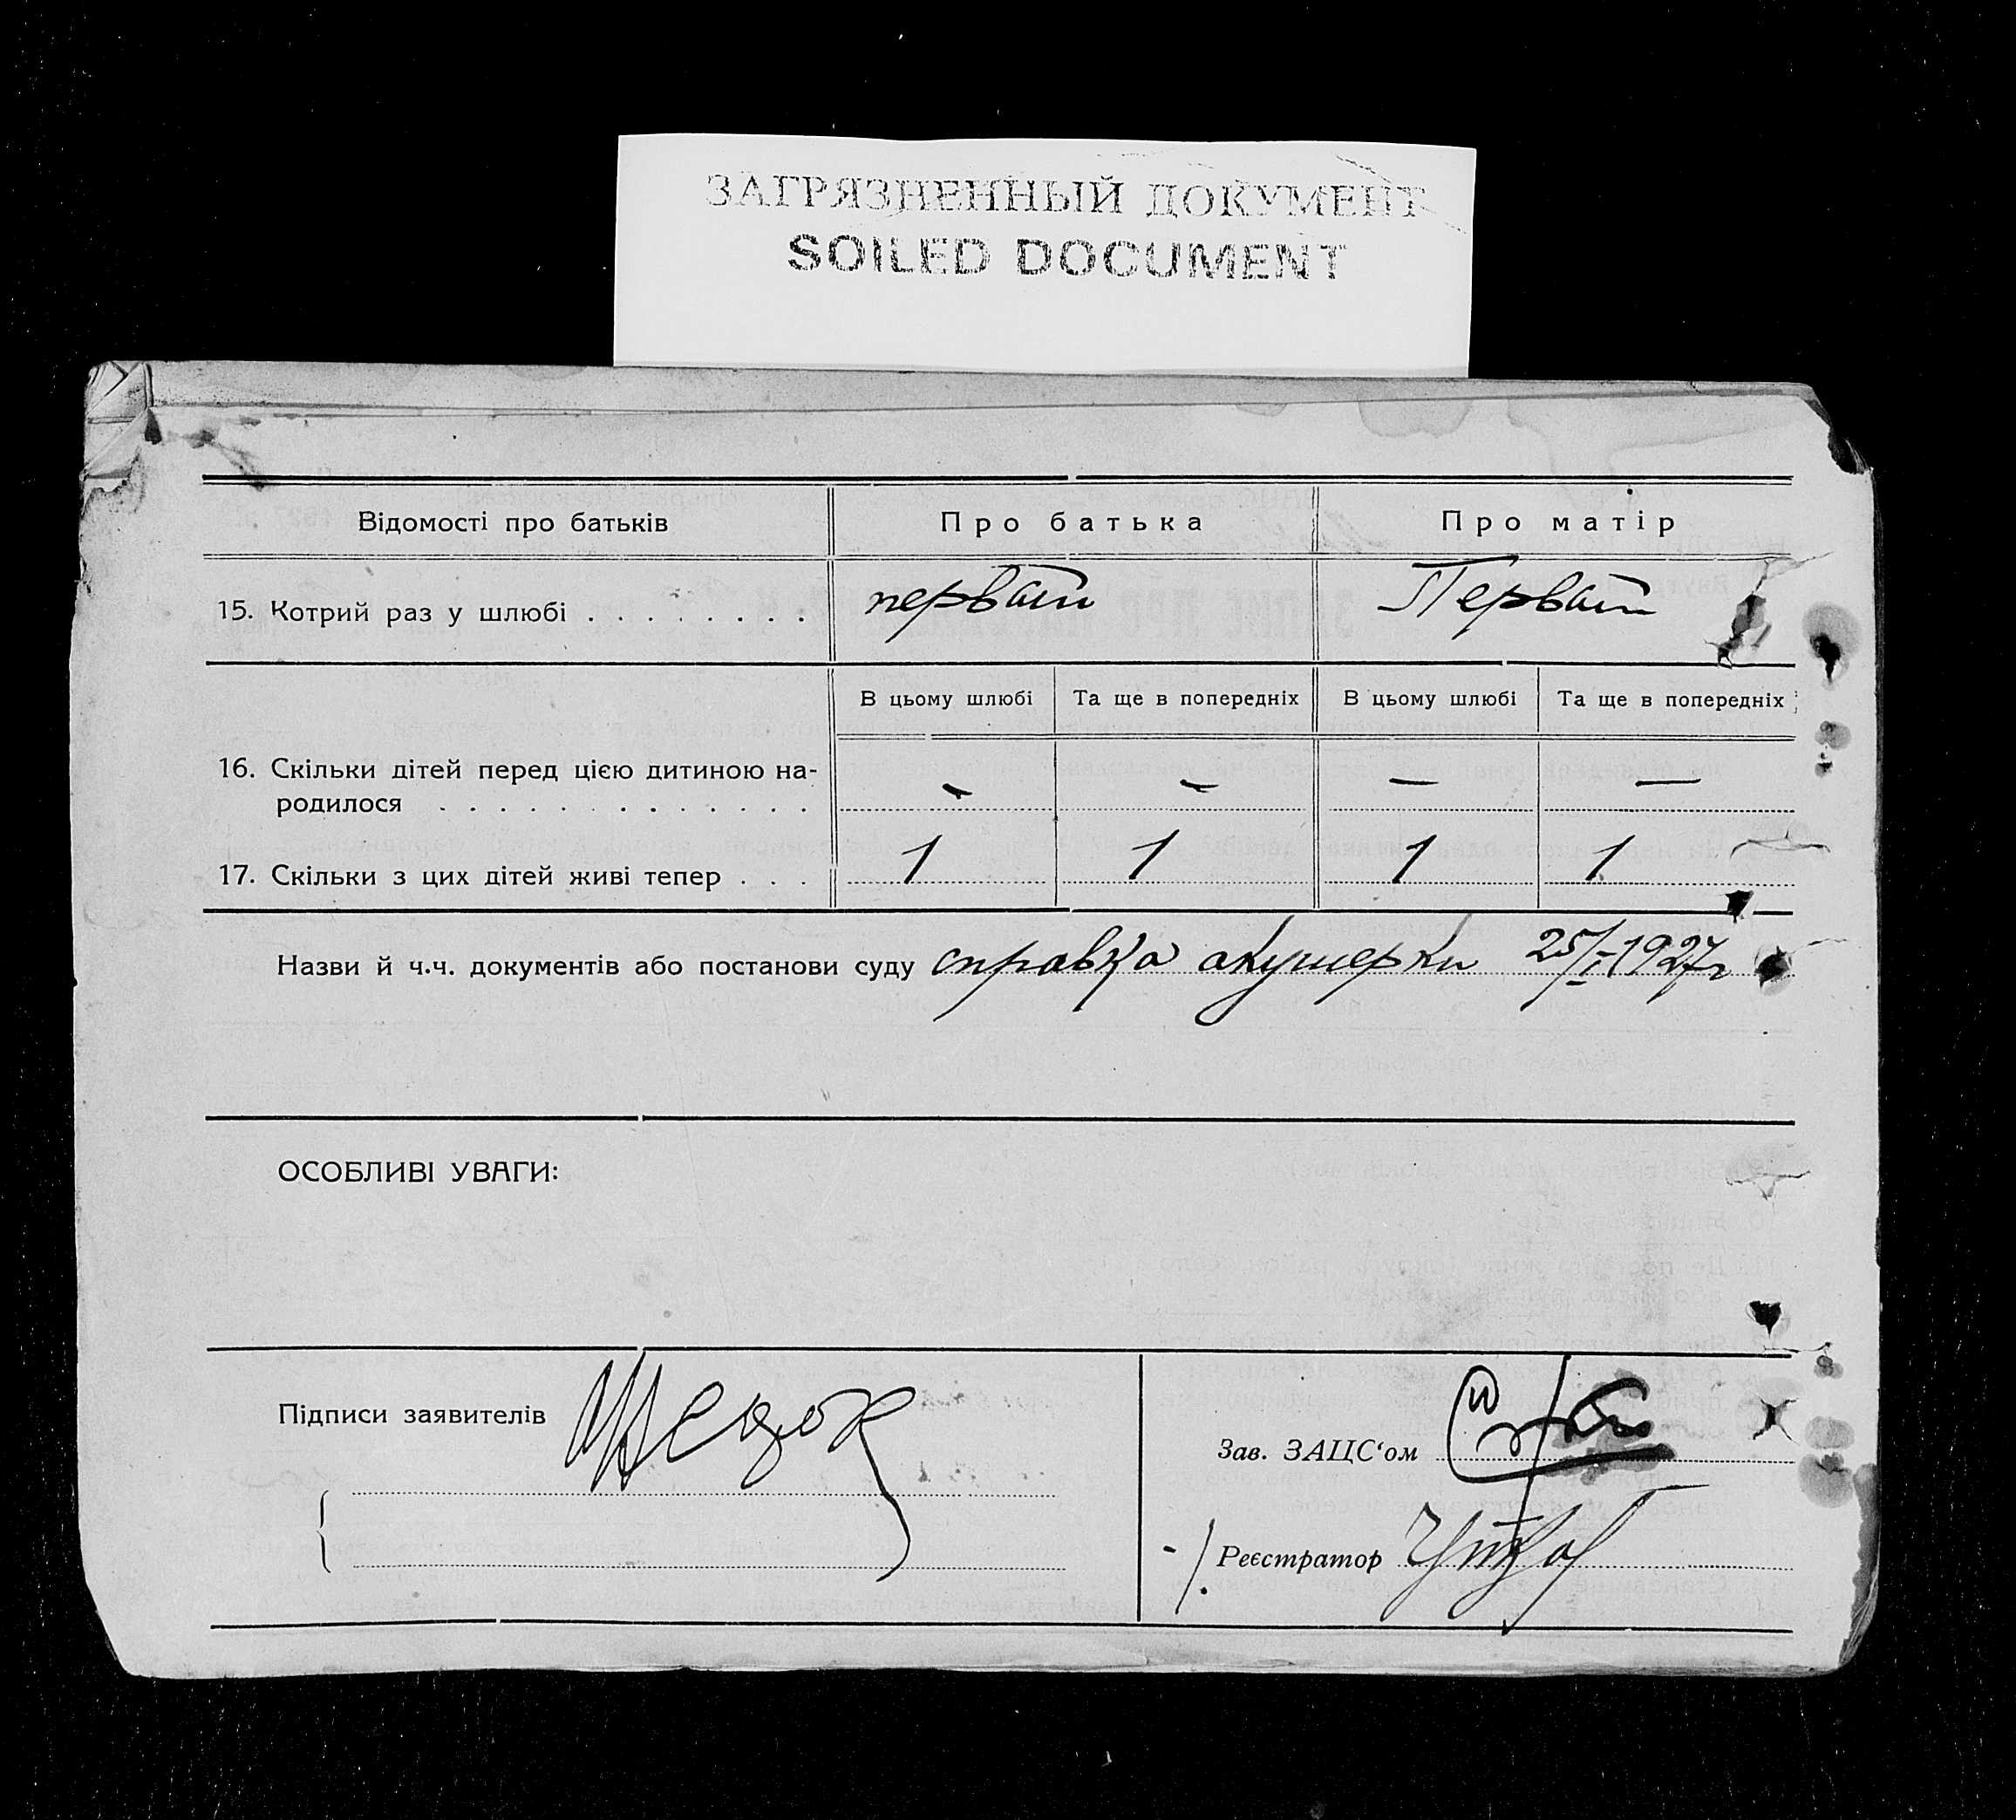 ЗАГРЯЗНЕННЫЙ ДОКУМЕНТ
SOILED DOCUMENT
Відомості про батьків Про батька Про матір
15. Котрий раз у шлюбі . . . . . . . . первый Первый
В цьому шлюбі Та ще в попередніх В цьому шлюбі Та ще в попередніх
16. Скільки дітей перед цією дитиною на-
родилося . . . . . . . . . . . . . - - — —
17. Скільки з цих дітей живі тепер . . . 1 1 1 1
Назви й ч.ч. документів або постанови суду справка акушерки 25/I-1927г
ОСОБЛИВІ УВАГИ:
Підписи заявителів
Зав. ЗАЦС‘ом
Реєстратор